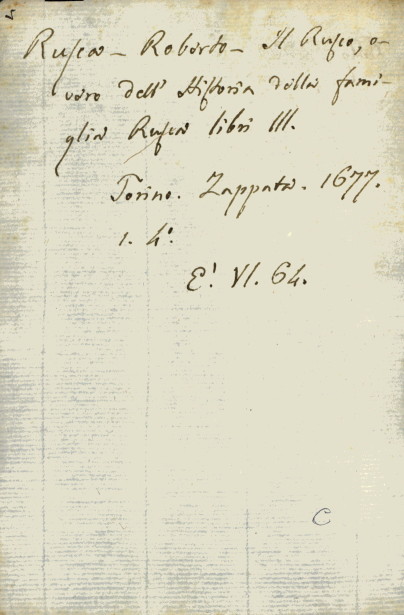 Rusca - Roberto - Il Rusco, o-
vero dell' Historia della fami-
glia Rusca libri III.
Torino. Zappata. 1677.
1. 4.°
E'. VI. 64.
C